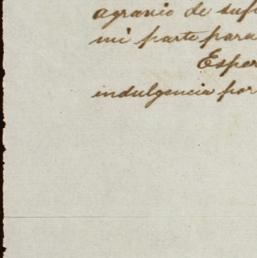 agravio de suf
mi parte para
Esper
indulgencia por